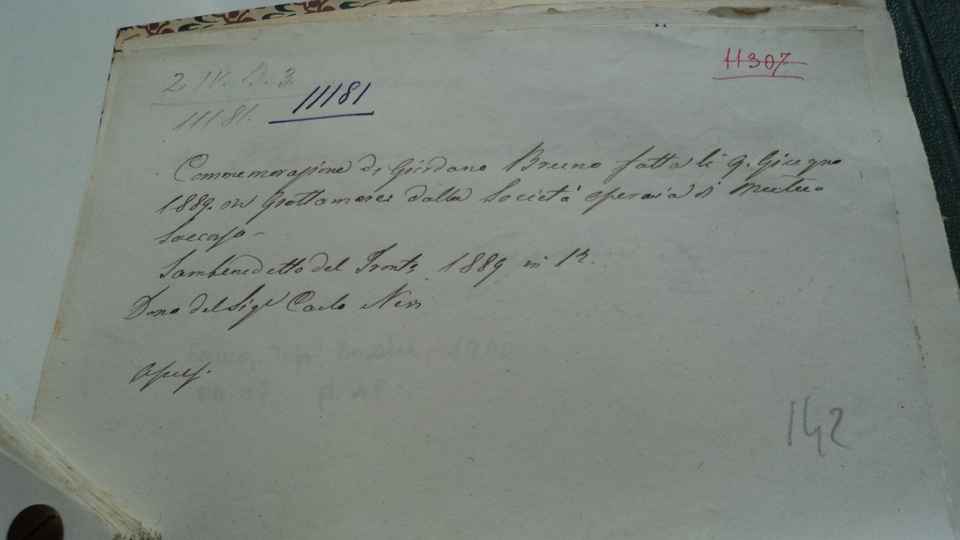 11307
2 IV. D. 3.
11181. 11181
Commemorazione di Giordano Bruno fatta li 9. Giugno
1889. in Grottamare dalla Società operaia di Mutuo
Soccorso -
Sambenedetto del Tronto 1889 in
Dono del Sigr Carlo
Opusc.
142